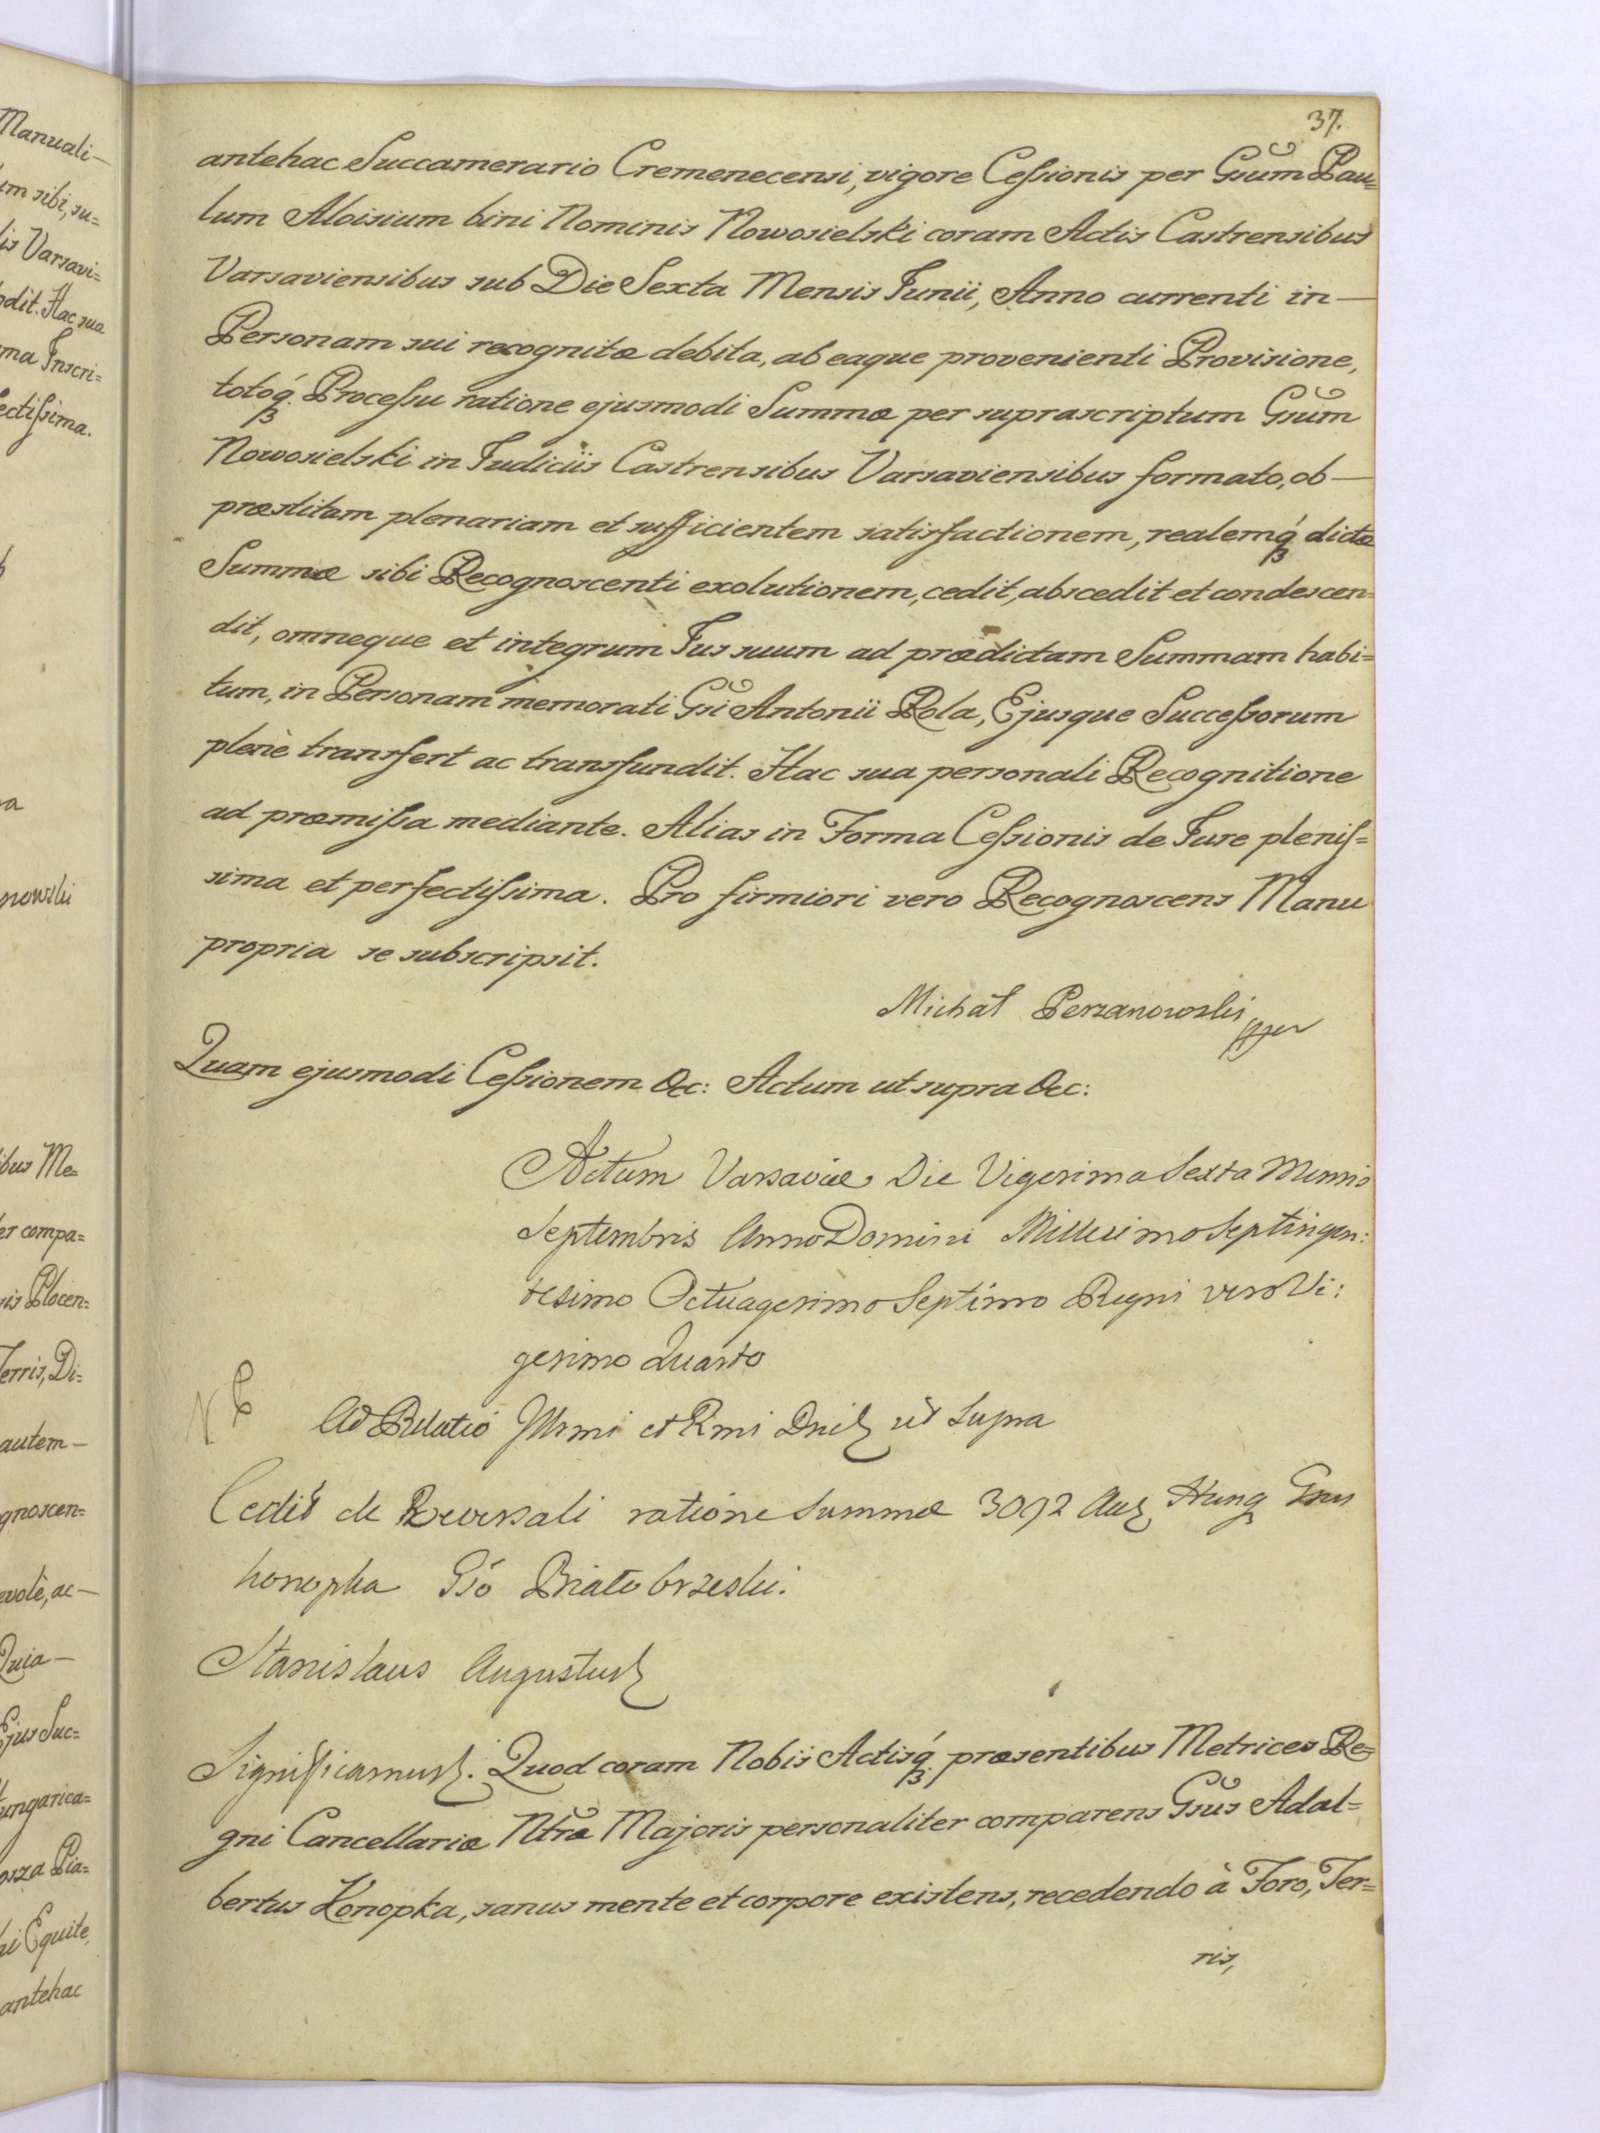 37.
antehac Succamerario Cremenecensi, vigore Cessionis per Gsum Pau=
lum Aloisium bini Nominis Nowosielski coram Actis Castrensibus
Varsaviensibus sub Die Sexta Mensis Junii, Anno currenti in —
Personam sui recognitæ debita, ab eaque provenienti Provisione,
totoq́ꝫ Processu ratione ejusmodi Summæ per suprascriptum Gsum
Nowosielski in Judiciis Castrensibus Varsaviensibus formato, ob —
præstitam plenariam et sufficientem satisfactionem, realemq́ꝫ dictæ
Summæ sibi Recognoscenti exolutionem, cedit, abscedit et condescen=
dit, omneque et integrum Jus suum ad prædictam Summam habi=
tum, in Personam memorati Gsi Antonii Rola, Ejusque Successorum
plenè transfert ac transfundit. Hac sua personali Recognitione
ad præmissa mediante. Alias in Forma Cessionis de Jure plenis=
sima et perfectissima. Pro firmiori vero Recognoscens Manu
propria se subscripsit.
Michał Perzanowski
Quam ejusmodi Cessionem &c: Actum ut supra &c:
Actum Varsaviæ Die Vigesima Sexta Mensis
Septembris Anno Domini Millesimo Septingen:
tesimo Octuagesimo Septimo Regni vero Vi:
gesimo Quarto
Ad Relatio Illsmi et Rmi Dni ut Supra
Cedit de Reversali ratione Summæ 3092 Aur Hung Gsus
Konopka Gso Białobrzeski.
Stanislaus Augustus
Significamus. Quod coram Nobis Actisq́ꝫ præsentibus Metrices Re=
gni Cancellariæ Ntræ Majoris personaliter comparens Gsus Adal=
bertus Konopka, sanus mente et corpore existens, recedendo à Foro, Ter=
ris,
Manuali —
um sibi, su=
lis Varsavi=
odit. Hac sua
ma Inscri=
ectissima.
nowski
ibus Me=
er compa=
is Plocen=
Terris, Di=
autem —
gnoscen=
evolè, ac —
Quia —
Ejus Suc=
ungarica=
osza Pia=
ki Equite,
antehac